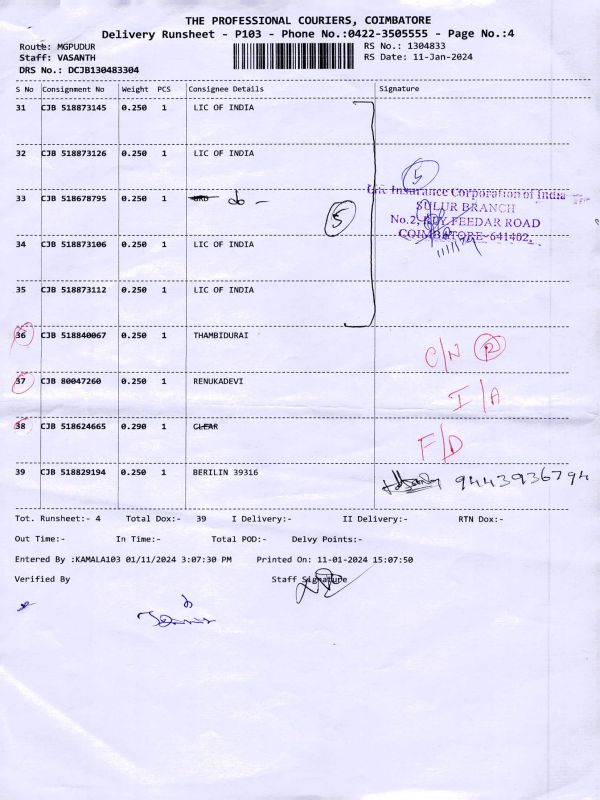 THE PROFESSIONAL COURIERS, COIMBATORE
Delivery Runsheet - P103 - Phone No.:0422-3505555 - Page No.:4
Route: MGPUDUR
RS No.: 1304833
Staff: VASANTH
RS Date: 11-Jan-2024
DRS No.: DCJB130483304
S No Consignment No Weight PCS Consignee Details Signature
31 CJB 518873145 0.250 1 LIC OF INDIA
32 CJB 518873126 0.250 1 LIC OF INDIA
5
Life Insurance Corporation of India
33 CJB 518678795 0.250 1 do -
SULUR BRANCH
5
No.2, ROY FEEDAR ROAD
COIMBATORE-641402.
34 CJB 518873106 0.250 1 LIC OF INDIA
11/1/24
35 CJB 518873112 0.250 1 LIC OF INDIA
36 CJB 518840067 0.250 1 THAMBIDURAI
C/N
37 CJB 80047260 0.250 1 RENUKADEVI
I/A
38 CJB 518624665 0.290 1 CLEAR
F/D
39 CJB 518829194 0.250 1 BERILIN 39316 9443936794
Tot. Runsheet:- 4 Total Dox:- 39 I Delivery:- II Delivery:- RTN Dox:-
Out Time:- In Time:- Total POD:- Delvy Points:-
Entered By :KAMALA103 01/11/2024 3:07:30 PM Printed On: 11-01-2024 15:07:50
Verified By Staff Signature